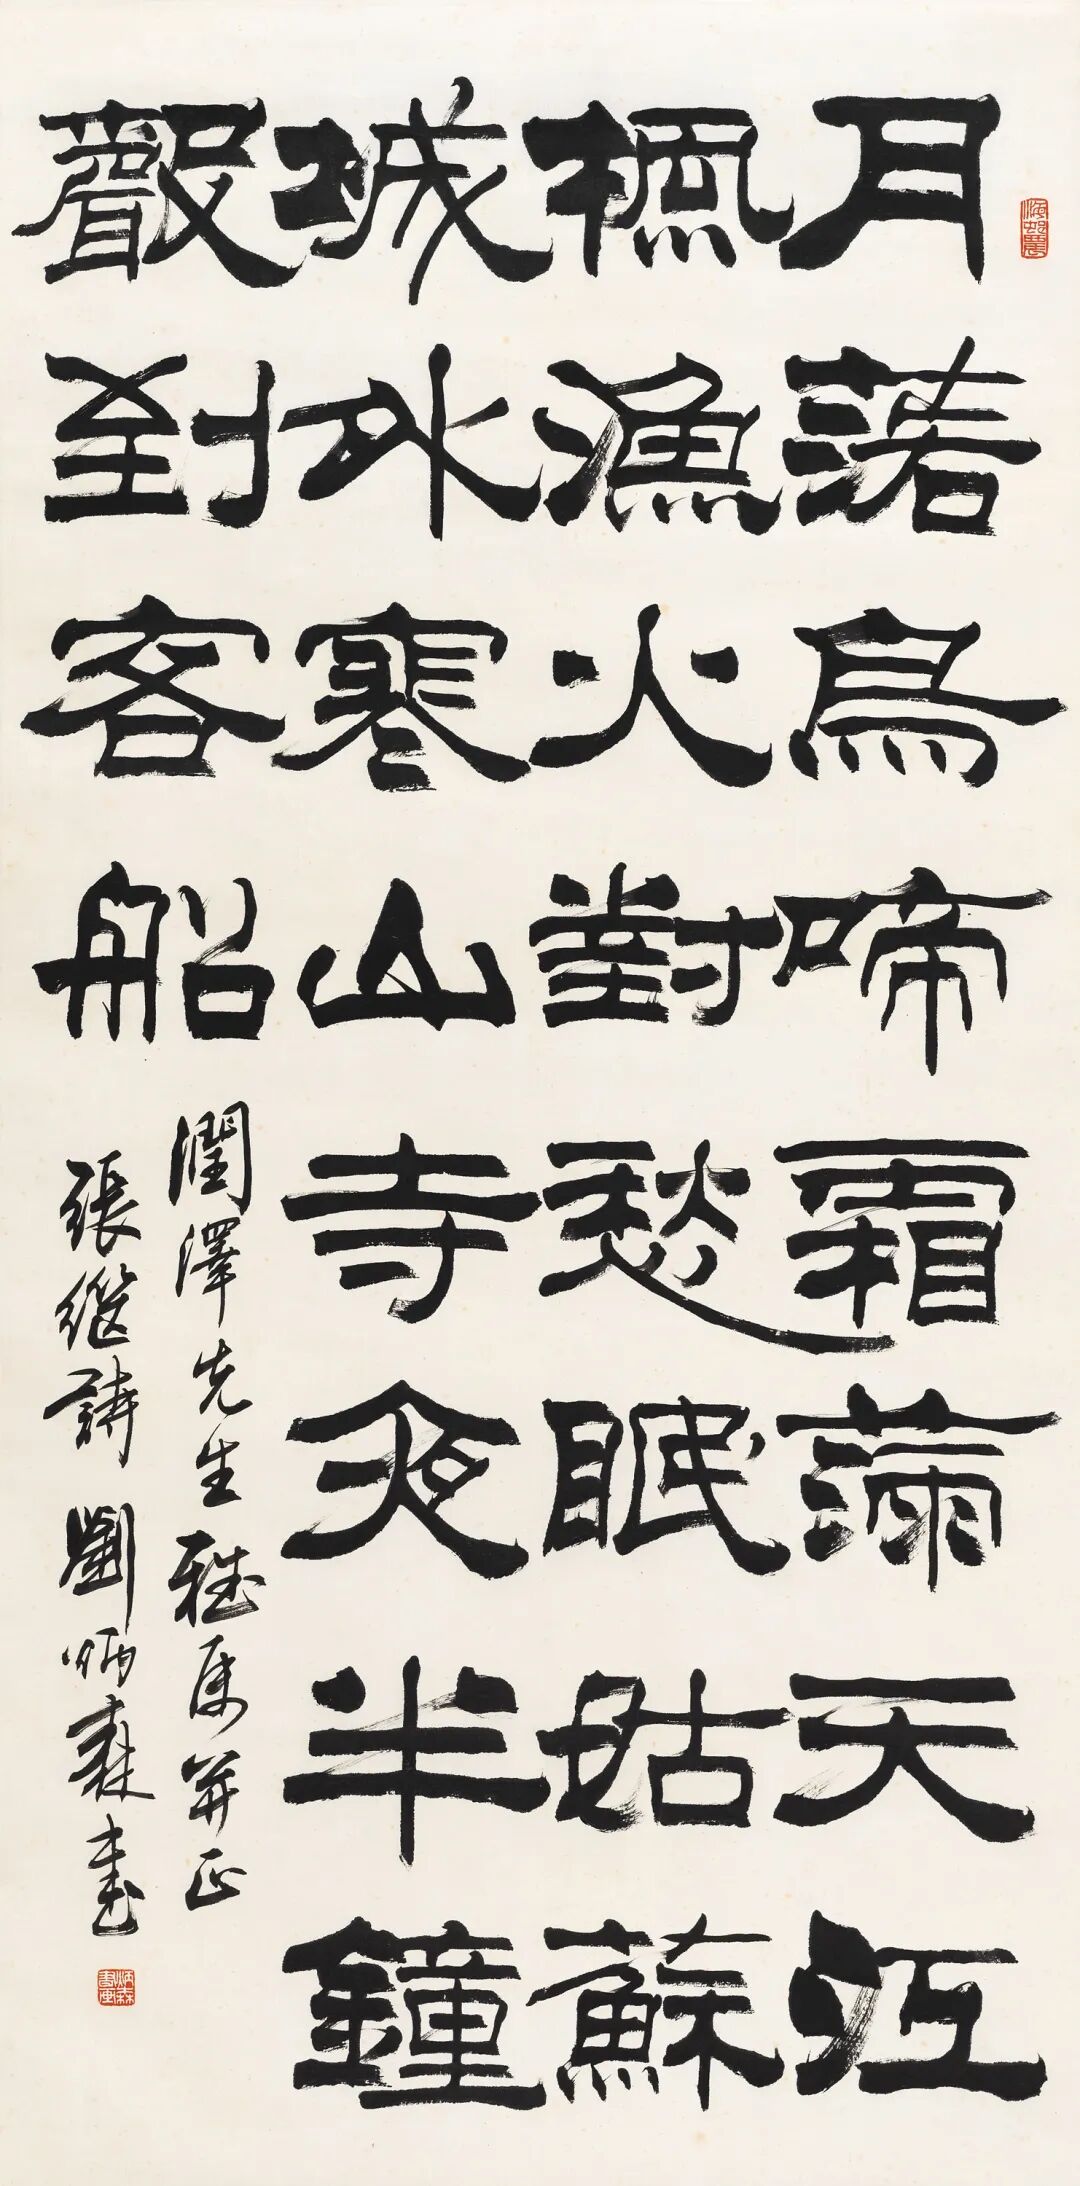 月落烏啼霜滿天江
楓漁火對愁眠姑蘇
城外寒山寺夜半鐘
聲到客船
潤澤先生雅属并正
張継詩 劉炳森書